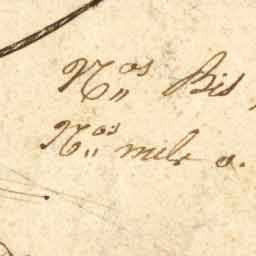 N.os Bis
N.os mile a.